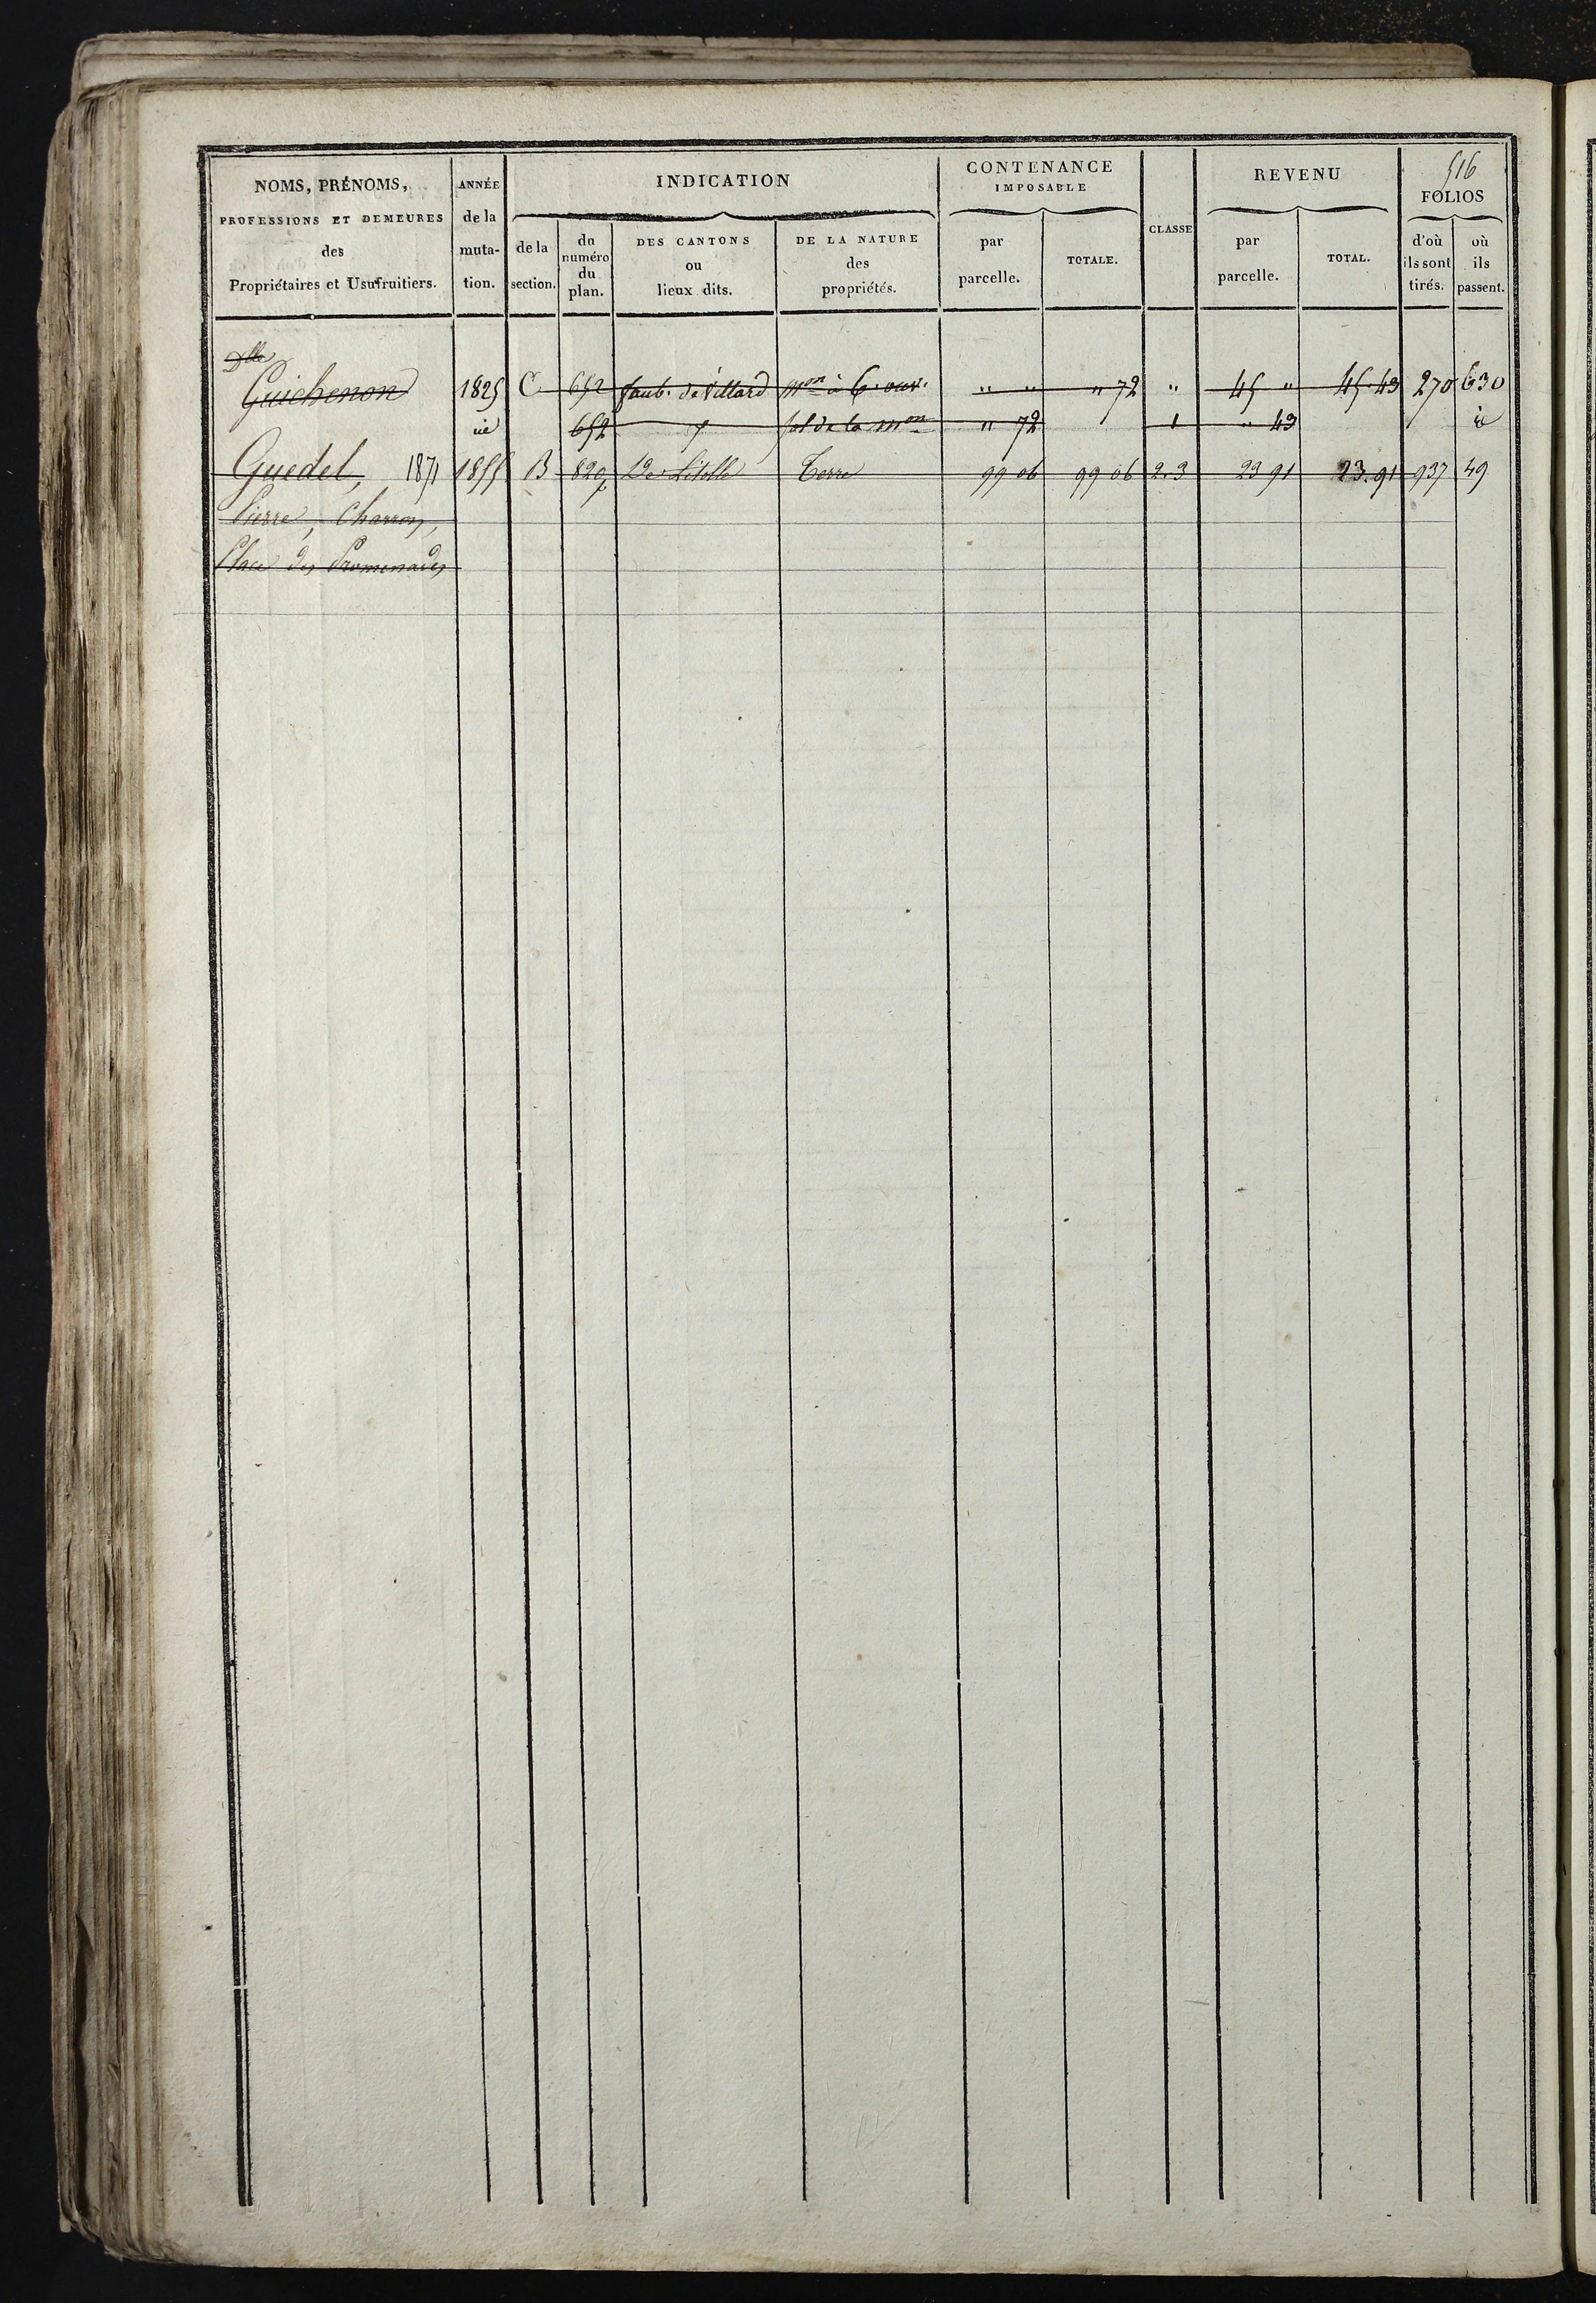 516
NOMS, PRÉNOMS,
PROFESSIONS ET DEMEURES
des
Propriétaires et Usufruitiers.
ANNÉE
de la
muta-
tion.
INDICATION
de la
section.
du
numéro
du
plan.
DES CANTONS
ou
lieux dits.
DE LA NATURE
des
propriétés.
CONTENANCE
IMPOSABLE
par
parcelle.
TOTALE.
CLASSE
REVENU
par
parcelle.
TOTAL.
FOLIOS
d'où
ils sont
tirés.
où
ils
passent.
Dlle
Guichenon 1825 C 652 faub. de Villard mon à 6. ouv. " " " 72 " 45 " 45.43 270 630
id 652 sol de la mon " 72 1 " 43 id
Guedel, 1871 1855 B 820p Terre 99 06 99 06 2.3 23 91 23.91 937 49
Pierre, Charron,
Place des Promenades